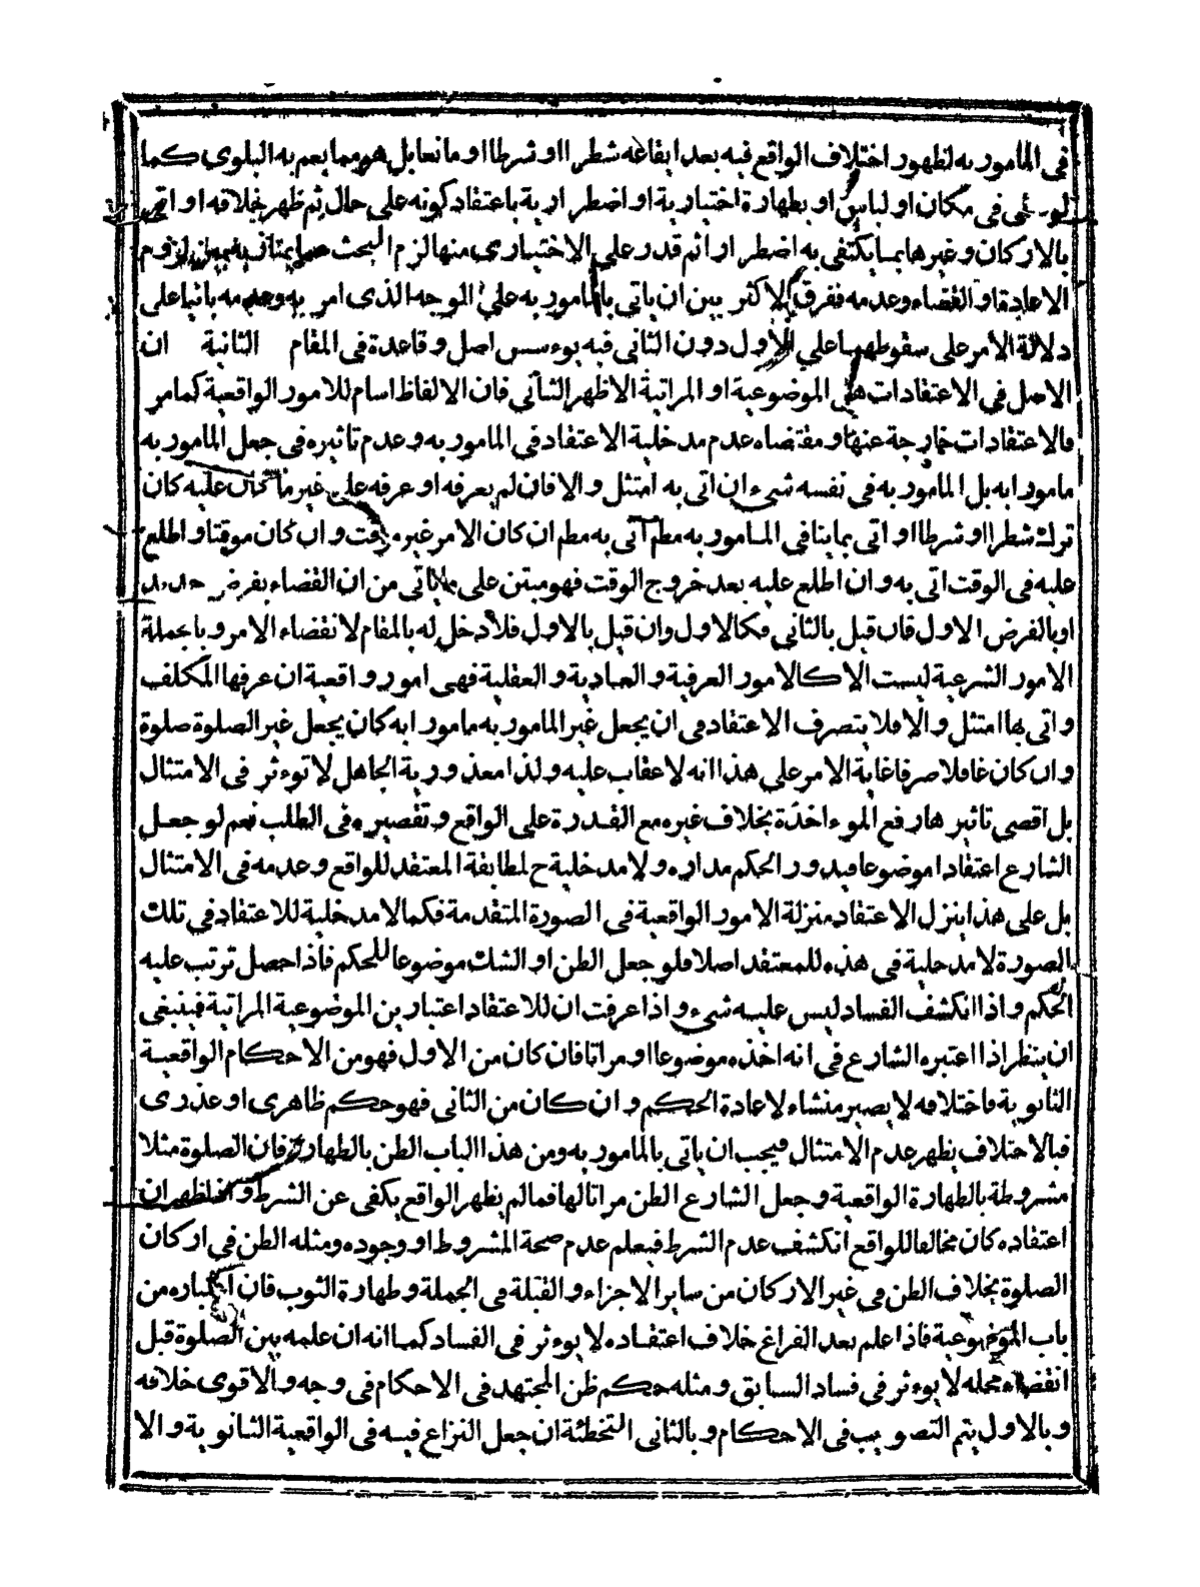 فى المامور به لظهور اختلاف الواقع فيه بعد ايقاعه شطرا او شرطا او مانعا بل هو مما يعم به البلوي كما
فى مكان او لباس او بطهارة اختيارية او اضطرارية باعتقاد كونه على حال ثم ظهر خلافه او اتى
بالاركان وغيرها بما يكتفى به اضطرارا ثم قدر على الاختيارى منها لزم البحث عما يمتاز به لزوم
الاعادة او القضاء وعدمه ففرق الاكثر بين ان ياتى بالمامور به على الوجه الذى امر به وعدمه بانيا على
دلالة الامر على سقوطهما على الاول دون الثانى فيه يوءسس اصل وقاعدة فى المقام الثانية ان
الاصل في الاعتقادات هل الموضوعية او المراتية الاظهر الثانى فان الالفاظ اسام للامور الواقعية كما مر
فالاعتقادات خارجة عنها ومقتضاه عدم مدخلية الاعتقاد في المامور به وعدم تاثيره فى جعل المامور به
مامورا به بل المامور به فى نفسه شىء ان اتى به امتثل والا فان لم يعرفه او عرفه على غير ما كان عليه كان
ترك شطرا او شرطا او اتى بما ينافى المامور به مطم اتى به مطم ان كان الامر غير موقت وان كان موقتا واطلع
عليه فى الوقت اتى به وان اطلع عليه بعد خروج الوقت فهو مبتن على ما ياتى من ان القضاء بفرض جديد
او بالفرض الاول فان قيل بالثاني فكالاول وان قيل بالاول فلا دخل له بالمقام لانقضاء الامر وبالجملة
الامور الشرعية ليست الا كالامور العرفية والعادية والعقلية فهى امور واقعية ان عرفها المكلف
واتى بها امتثل والا فلا يتصرف الاعتقاد فى ان يجعل غير المامور به مامورا به كان يجعل غير الصلوة صلوة
وان كان غافلا صرفا غاية الامر على هذا انه لا عقاب عليه ولذا معذورية الجاهل لا توءثر فى الامتثال
بل اقصى تاثيرها رفع الموءاخذة بخلاف غيره مع القدرة على الواقع وتقصيره فى الطلب نعم لو جعل
الشارع اعتقادا موضوعا فيدور الحكم مداره ولا مدخلية ح لمطابقة المعتقد للواقع وعدمه فى الامتثال
بل على هذا ينزل الاعتقاد منزلة الامور الواقعية فى الصورة المتقدمة فكما لا مدخلية للاعتقاد فى تلك
الصورة لا مدخلية فى هذه للمعتقد اصلا فلو جعل الظن او الشك موضوعا للحكم فاذا حصل ترتب عليه
الحكم واذا انكشف الفساد ليس عليه شىء واذا عرفت ان للاعتقاد اعتبارين الموضوعية المراتية فينبغى
ان ينظر اذا اعتبره الشارع فى انه اخذه موضوعا او مراتا فان كان من الاول فهو من الاحكام الواقعية
الثانوية فاختلافه لا يصير منشاء لاعادة الحكم وان كان من الثانى فهو حكم ظاهرى او عذرى
فبالاختلاف يظهر عدم الامتثال فيجب ان ياتى بالمامور به ومن هذا الباب الظن بالطهارة فان الصلوة مثلا
مشروطة بالطهارة الواقعية وجعل الشارع الظن مراتا لها فما لم يظهر الواقع يكفى عن الشرط واذا ظهر ان
اعتقاده كان مخالفا للواقع انكشف عدم الشرط فيعلم عدم صحة المشروط او وجوده ومثله الظن في اركان
الصلوة بخلاف الظن فى غير الاركان من ساير الاجزاء والقبلة فى الجملة وطهارة الثوب فان اعتباره من
باب الموضوعية فاذا علم بعد الفراغ خلاف اعتقاده لا يوءثر فى الفساد كما انه ان علمه بين الصلوة قبل
انقضاء محله لا يوءثر في فساد السابق ومثله حكم ظن المجتهد فى الاحكام فى وجه والاقوى خلافه
وبالاول يتم التصويب فى الاحكام وبالثانى التخطئة ان جعل النزاع فيه فى الواقعية الثانوية والا